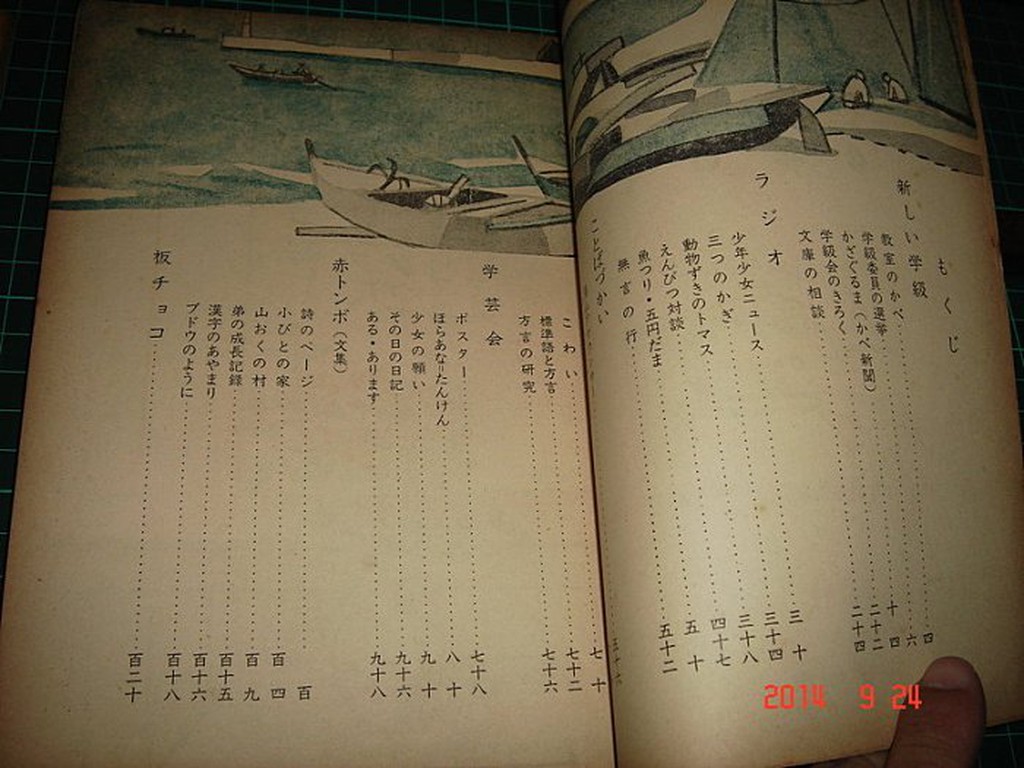 もくじ
新しい学級 四
教室のかべ 六
学級委員の選挙 十四
かざぐるま(かべ新聞)
学級会のきろく 二十二
文庫の相談 二十四
ラジオ 三十
少年少女ニュース 三十四
三つのかぎ 三十八
動物ずきのトマス 四十七
えんぴつ対談 五十
魚つり・五円だま 五十二
無言の行
ことばづかい
こわい 七十
標準語と方言 七十二
方言の研究 七十六
学芸会
ポスター 七十八
ほらあな=たんけん 八十
少女の願い 九十
その日の日記 九十六
ある・あります 九十八
赤トンボ(文集)
詩のページ 百
小びとの家 百四
山おくの村 百九
弟の成長記録 百十五
漢字のあやまり 百十六
ブドウのように 百十八
板チョコ 百二十
2014 9 24